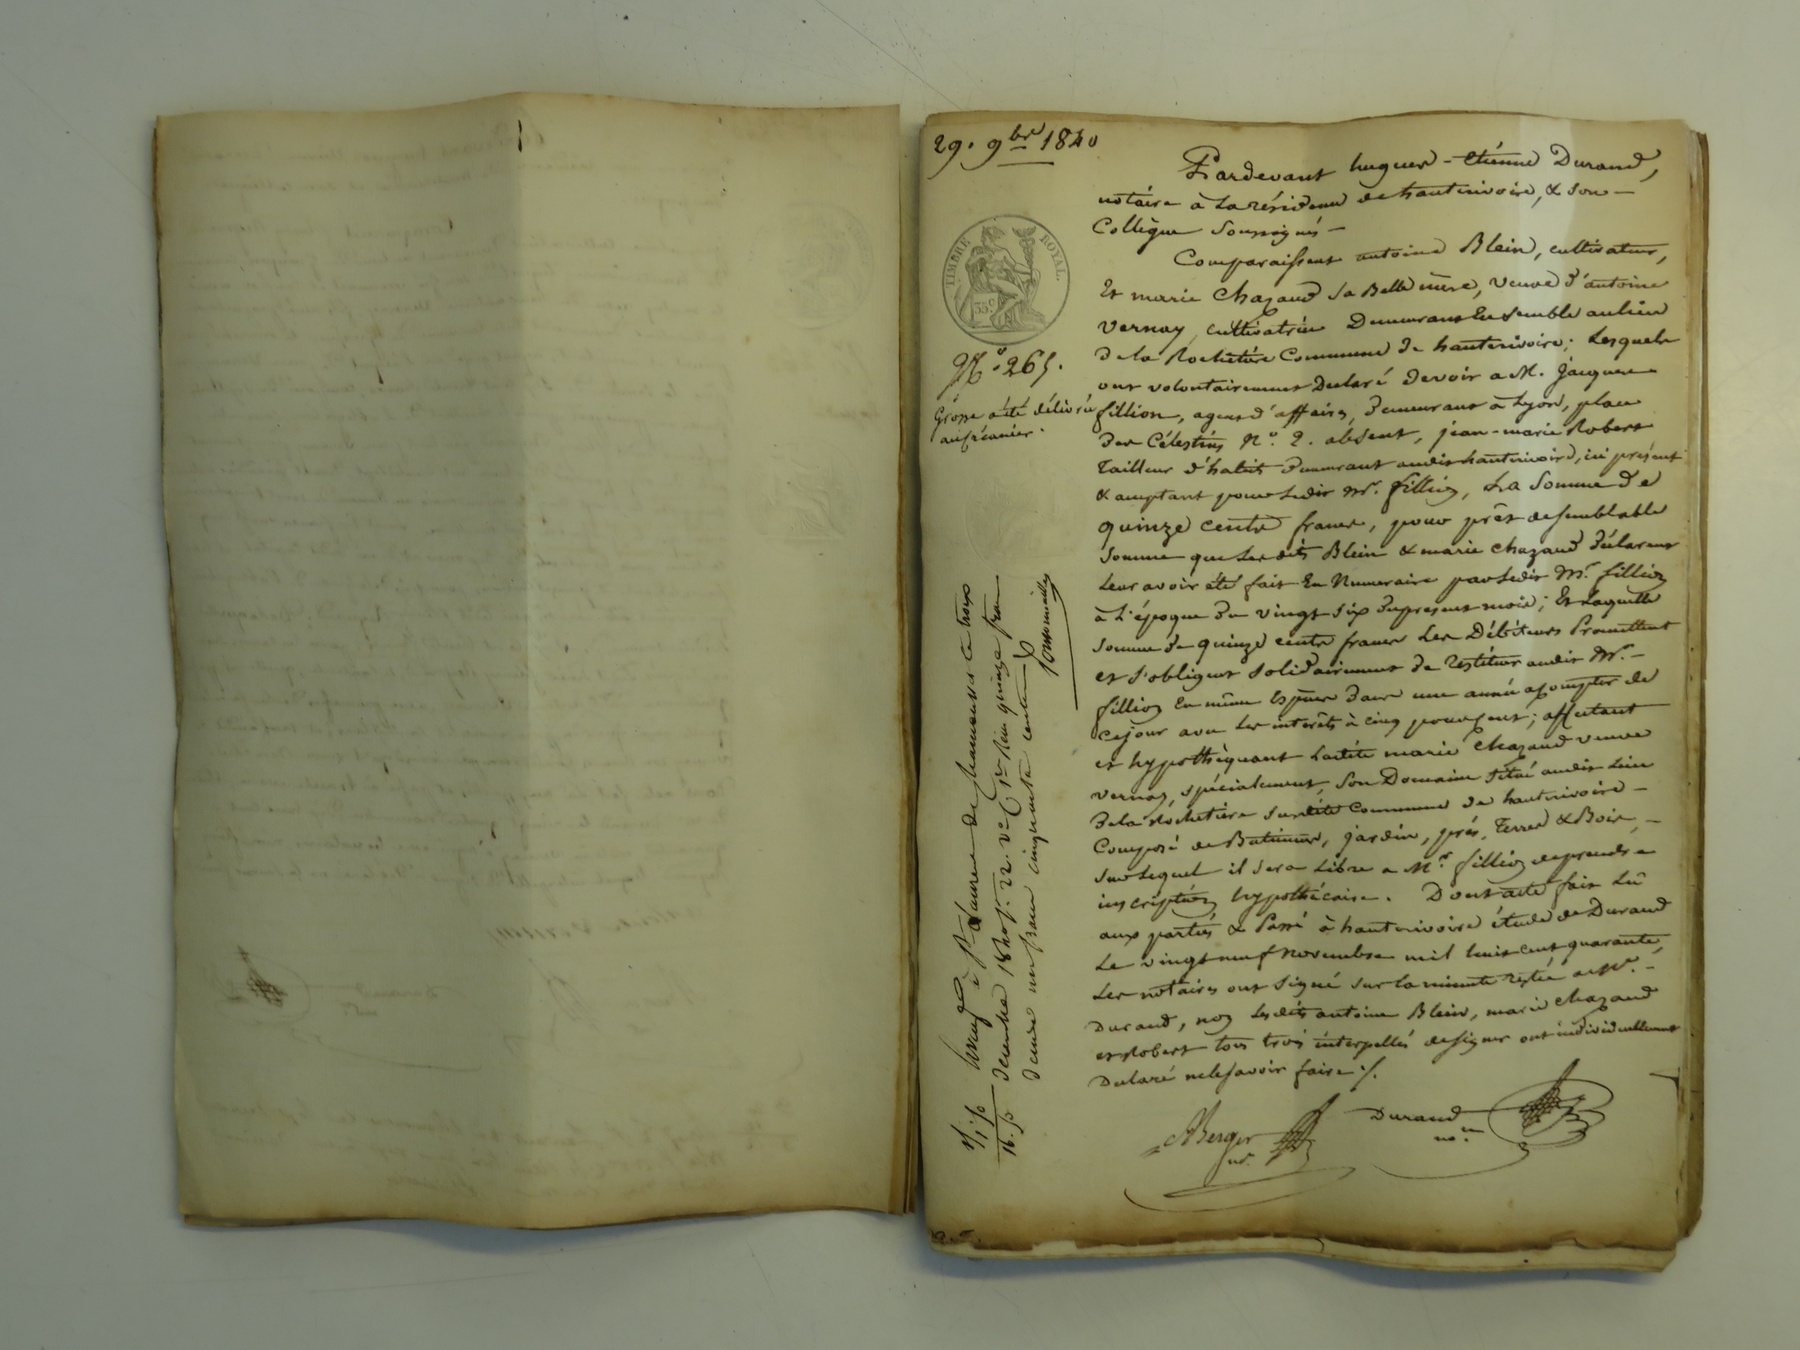 29. 9bre 1840
TIMBRE ROYAL
35 c
No. 265.
Grosse a été délivrée
au créancier.
Pardevant hugues-etiénne Durand,
notaire à La résidence de hauterivoire, & son
Collègue Soussignés
Comparaissent antoine Blein, cultivateur,
Et marie Chazaud sa Belle mère, veuve d'antoine
Vernay, cultivatrice Demeurant Ensemble au lieu
de la Rochetière Commune de hauterivoire; Lesquels
ont volontairement Declaré devoir a M. Jacques
fillion, agent d'affaires, demeurant à Lyon, place
des Célestins No. 2. absent, jean-marie Robert
Tailleur d'habits demeurant audit hauterivoire, ici présent
& acceptant pour Ledit Mr. fillion, La Somme de
quinze cents francs, pour prêt de semblable
Somme que Lesdits Blein & marie chazaud déclarent
Leur avoir été fait En Numeraire par Ledit Mr. fillion
à L'époque du vingt six du present mois; Et Laquelle
Somme de quinze cents francs Les Débiteurs Promettent
et s'obligent Solidairement de Restituer audit Mr.
fillion En même Espèces dans une année a compter de
ce jour avec Les intérêts à cinq pour cent; affectant
et hypothèquant Ladite marie Chazaud veuve
Vernay, spécialement, Son Domaine Situé audit Lieu
de la Rochetière Susdite Commune de hauterivoire
Composé de Batiments, jardin, prés, Terres & Bois,
Sur Lequel il Sera Libre a Mr. fillion de prendre
inscription hypothécaire. Dont acte fait Lû
aux parties & Passé à hauterivoire étude de Durand
Le vingt neuf novembre mil huit cent quarante,
Les notaires ont Signé Sur la minute restée a Mr.
Durand, non Lesdits antoine Blein, marie chazaud
et Robert tous trois interpellés de signer ont individuellement
Declaré ne le Savoir faire ./.
ABerger
nre.
Durand
nore.
Enregistré à St Laurent de Chamousset le trois
décembre 1840 fo. 22. Vo C 1re Reçu quinze francs
decime un franc cinquante centimes